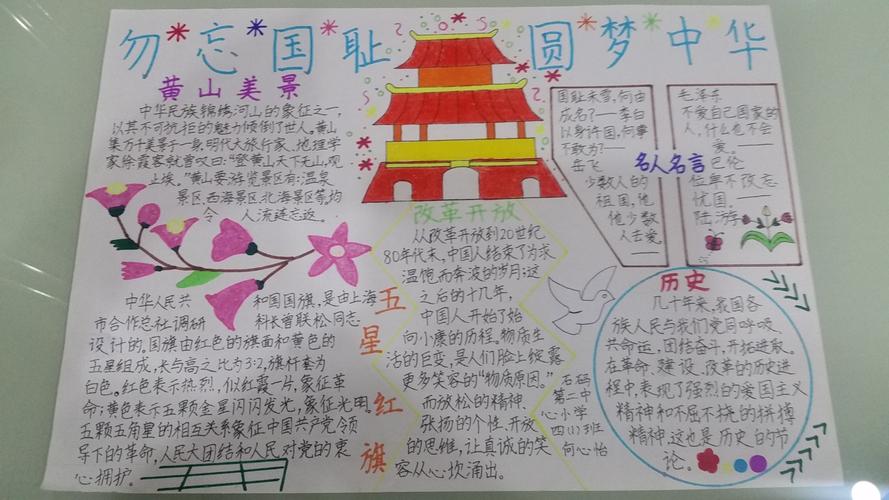 勿忘国耻 圆梦中华
黄山美景
中华民族锦绣河山的象征之一,
以其不可抗拒的魅力倾倒了世人。黄山
集万千美景于一身,明代大旅行家、地理学
家徐霞客就曾叹曰:“登黄山天下无山,观
止矣。”黄山要游览景区有:温泉
景区、西海景区、北海景区等。均
令人流连忘返。
国耻未雪,何由
成名?——李白
以身许国,何事
不敢为?——
岳飞
少数人的
祖国,他
他少数
人去爱。
名人名言
毛泽东
不爱自己国家的
人,什么也不会
爱。——
巴伦
位卑不改忘
忧国。——
陆游
改革开放
从改革开放到20世纪
80年代末,中国人结束了为求
温饱而奔波的岁月;这
之后的十几年,
中国人开始了始
向小康的历程。物质生
活的巨变,是人们脸上绽露
更多笑容的“物质原因。”
而放松的精神、
张扬的个性、开放
的思维,让真诚的笑
容从心坎涌出。
五星红旗
中华人民共和国国旗,是由上海
市合作总社调研科长曾联松同志
设计的。国旗由红色的旗面和黄色的
五星组成,长与高之比为3:2,旗杆套为
白色。红色表示热烈,似红霞一片,象征革
命;黄色表示五颗金星闪闪发光,象征光明。
五颗五角星的相互关系象征中国共产党领
导下的革命,人民大团结和人民对党的衷
心拥护。
石码
第二中
心小学
四(1)班
何心怡
历史
几十年来,我国各
族人民与我们党同呼吸、
共命运,团结奋斗,开拓进取。
在革命、建设、改革的历史进
程中,表现了强烈的爱国主义
精神和不屈不挠的拼搏
精神。这也是历史的节
论。